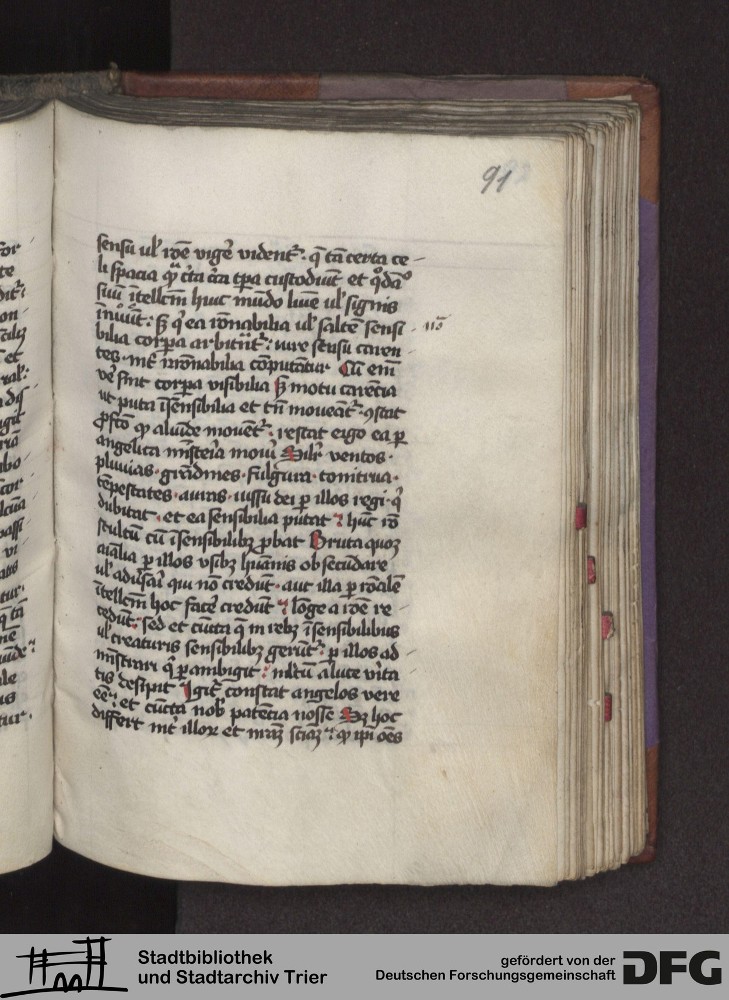 91
sensu ul' roē vigē vident᷑. q̄ tā certa ce
li spacia q̄ ita c̄ta tpa custodiūt et q̊dā
suū ītellcm̄ huic mūdo liuē ul' signis
īnuūt: S; q̄ ea rōnabilia ul' saltē sensi
bilia corpa arbitūt᷑: iure sensu caren
tes int̄ irrōnabilia cōputātur Cū eīn
vē sint corpa visibilia s; motu carētia
ut puta īsensibilia et tn̄ moueāt᷑. ꝯstat
ꝓfcō ꝙ aliūde mouēt᷑. restat ergo ea ꝑ
angelica mīsteīa mouī Silr ventos.
pluuias. grādines. fulgura. tonitrua.
tēpestates. auras. iussu dei ꝑ illos regi. q̄
dubitat. et ea sensibilia putat: hūc īo
stultū cū īsensibilibꝫ ꝓbat Bruta quoꝫ
aīalia ꝑ illos vsibꝫ hūanis obsecūdare
ul' adūsaī qui nō credūt. aut illa ꝑ rōalē
ītellcm̄ hoc facē credūt: lōge a rōe re
cedūt: sed et cūcta q̄ in rebꝫ īsensibilibus
ul' creaturis sensibilibꝫ gerūt᷑: ꝑ illos ad
mīstrari q̄ ꝑambigit: mltū a luce vīta
tis desipit Igit᷑ constat angelos vere
eē: et cūcta nob̄ patētia nosse Sꝫ hoc
differt int̄ illor et nrāꝫ sciāꝫ: ꝙ ipi oēs
Stadtbibliothek
und Stadtarchiv Trier
gefördert von der
Deutschen Forschungsgemeinschaft
DFG